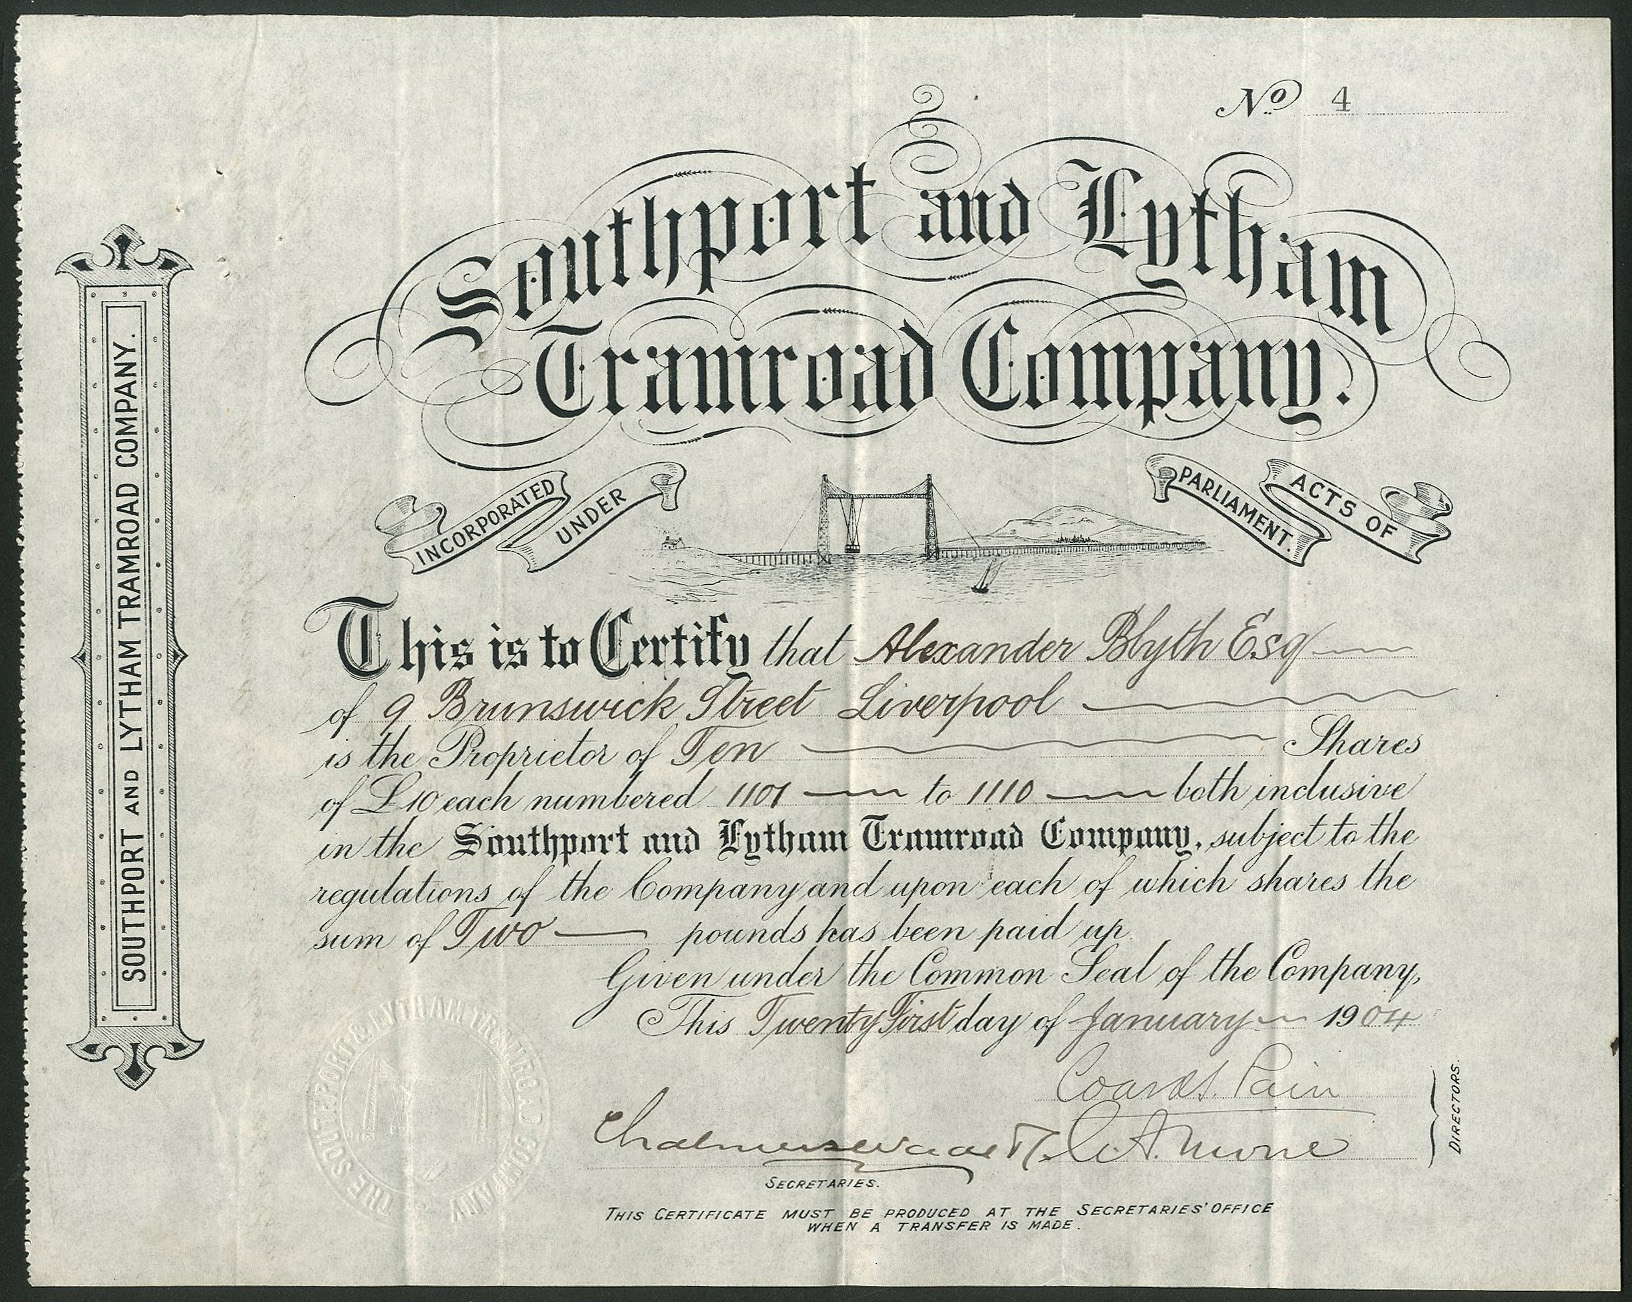 No 4
Southport and Lytham
Tramroad Company.
INCORPORATED UNDER PARLIAMENT. ACTS OF
SOUTHPORT AND LYTHAM TRAMROAD COMPANY.
This is to Certify that Alexander Blyth Esq
of 9 Brunswick Street Liverpool
is the Proprietor of Ten Shares
of £10 each numbered 1101 to 1110 both inclusive
in the Southport and Lytham Tramroad Company, subject to the
regulations of the Company and upon each of which shares the
sum of Two pounds has been paid up.
Given under the Common Seal of the Company,
This Twenty First day of January 1904
THE SOUTHPORT & LYTHAM TRAMROAD COMPANY
DIRECTORS.
SECRETARIES.
THIS CERTIFICATE MUST BE PRODUCED AT THE SECRETARIES' OFFICE
WHEN A TRANSFER IS MADE.